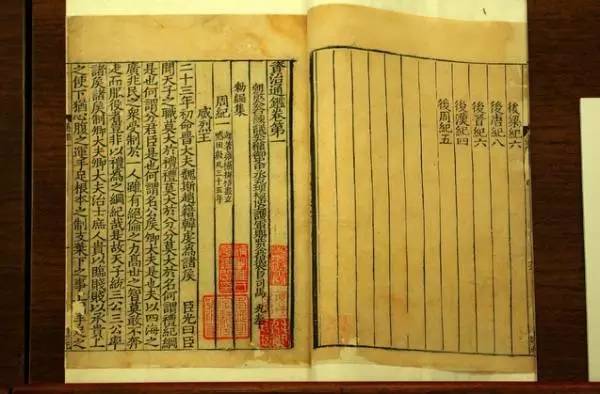 後梁紀六
後唐紀八
後晉紀六
後漢紀四
後周紀五
資治通鑑卷第一
朝散大夫右諫議大夫權御史中丞充理檢使上護軍賜紫金魚袋臣司馬 光奉
勑編集
周紀一 盡玄黓困敦凡三十五年
威烈王
二十三年初命晉大夫魏斯趙籍韓虔爲諸侯 臣光曰臣
聞天子之職莫大於禮禮莫大於分分莫大於名何謂禮紀綱
是也何謂分君臣是也何謂名公侯卿大夫是也夫以四海之
廣兆民之衆受制於一人雖有絕倫之力高世之智莫敢不奔
走而服役者豈非以禮爲之綱紀哉是故天子統三公三公率
諸侯諸侯制卿大夫卿大夫治士庶人貴以臨賤賤以承貴上
之使下猶心腹之運手足根本之制支葉下之事手足之